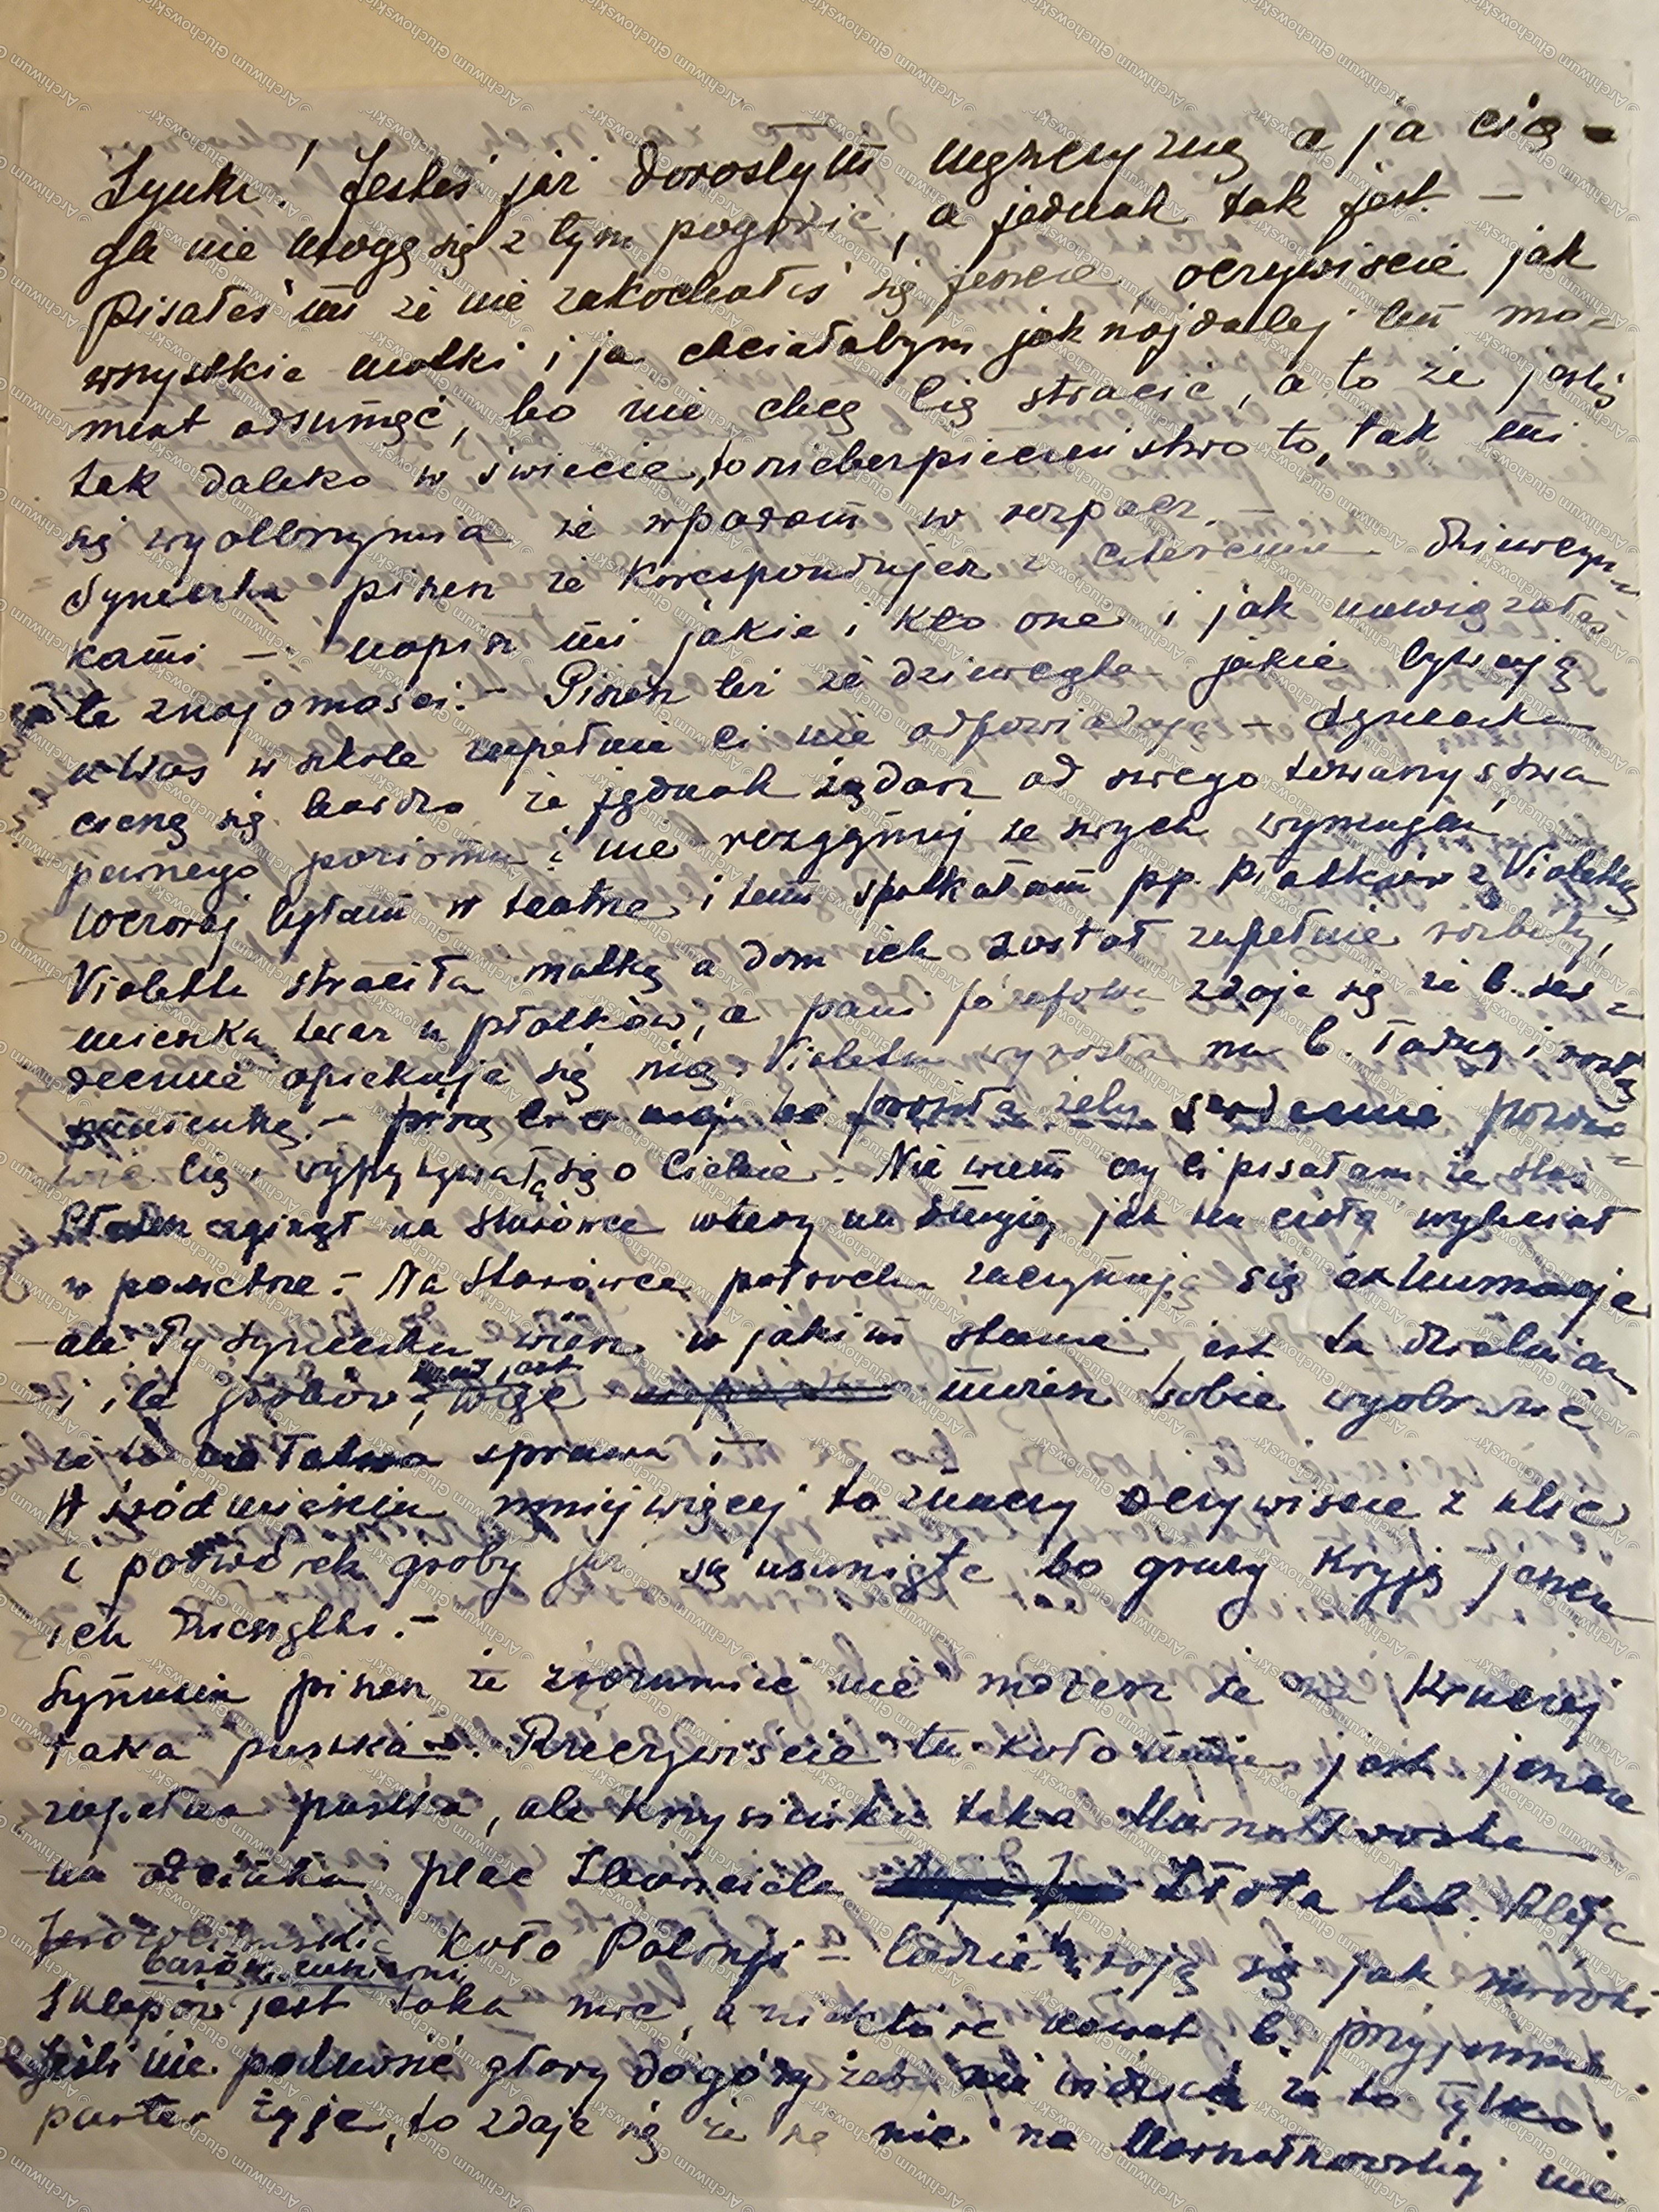 Synku! Jesteś już dorosłym mężczyzną a ja cią-
gle nie mogę się z tym pogodzić, a jednak tak jest. —
Pisałeś mi że nie zakochałeś się jeszcze, oczywiście jak
wszystkie matki i ja chciałabym jak najdalej ten mo-
ment odsunąć, bo nie chcę Cię stracić, a to że jesteś
tak daleko w świecie, to niebezpieczeństwo to, tak mi
się wyolbrzymia że wpadam w rozpacz. —
Syneczku piszesz że korespondujesz z czterema dziewczyn-
kami — napisz mi jakie i kto one i jak nawiązałeś
te znajomości. — Piszesz też że dziewczęta jakie bywają
u Was w szkole zupełnie Ci nie odpowiadają — Syneczku
cieszę się bardzo że jednak żądasz od swego towarzystwa
pewnego poziomu i nie rezygnuj ze swych wymagań,
Wczoraj byłam w teatrze i tam spotkałam pp. Płatków z Violettą
Violetta straciła matkę a dom ich został zupełnie rozbity,
mieszka teraz u Płatków, a pani Józefowa zdaje się że b. ser-
decznie opiekuje się nią. Violetta wyrosła na b. ładną i
panienkę. — prosiła żeby serdecznie pozdro-
wić Cię i wypytywała się o Ciebie. Nie wiem czy Ci pisałam że
zginął na Starówce wtedy na jak ten czołg wyleciał
w powietrze. — Na Starówce potrochu zaczynają się exhumacje
ale Ty Syneczku wiesz w jakim stanie jest ta dzielnica
i ile grobów tam jest, więc musisz sobie wyobrazić
że to nie łatwa sprawa. —
W śródmieściu mniejwięcej to znaczy oczywiście z ulic
i podwórek groby już są usunięte bo gruzy kryją jeszcze
ich dziesiątki. —
Synusiu piszesz że zrozumieć nie możesz że na Kruczej
taka pustka. Rzeczywiście tu koło mnie jest jeszcze
zupełna pustka, ale Krzysieńku taka Marszałkowska
na odcinku plac Zbawiciela Złota lub. Aleje
Jerozolimskie koło Polonji — ludzie roją się jak mrówki
barów, cukierni,
Sklepów jest taka moc, a niektóre nawet b. przyjemne.
Jeśli nie podnosić głowy do góry żeby nie widzieć że to tylko
parter żyje, to zdaje się że nic na Marszałkowskiej nie
© Archiwum Głuchowskich